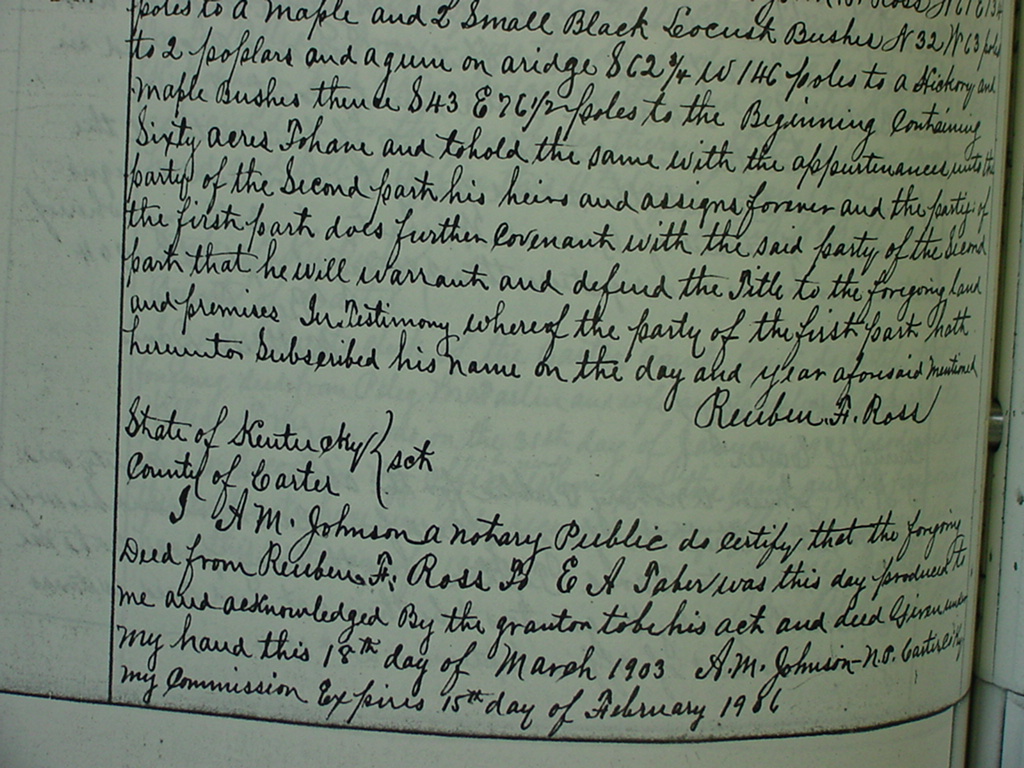 poles to a Maple and 2 Small Black Locust Bushes N 32 W 63 poles
to 2 poplars and agum on aridge S 62 3/4 W 146 poles to a Hickory and
Maple Bushes thence S 43 E 76 1/2 poles to the Beginning Containing
Sixty acres Tohave and tohold the same with the appurtenances, unto the
party of the Second part his heirs and assigns forever and the party of
the first part does further Covenant with the said party of the Second
part that he will warrant and defend the Title to the foregoing land
and premises In Testimony whereof the party of the first part hath
hereunto Subscribed his name on the day and year aforesaid mentioned
Reuben F. Ross
State of Kentucky
County of Carter } sct
I A M. Johnson a notary Public do certify that the forgoing
Deed from Reuben F. Ross To E A Taber was this day produced to
me and acknowledged By the grantor tobe his act and deed Given under
my hand this 18th day of March 1903 A. M. Johnson - N. P. Carter
my Commission Expires 15th day of February 1906